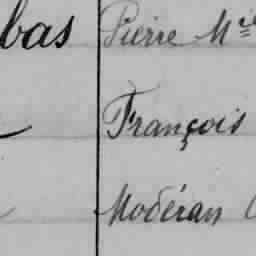 bas Pierre M
François
Modéran